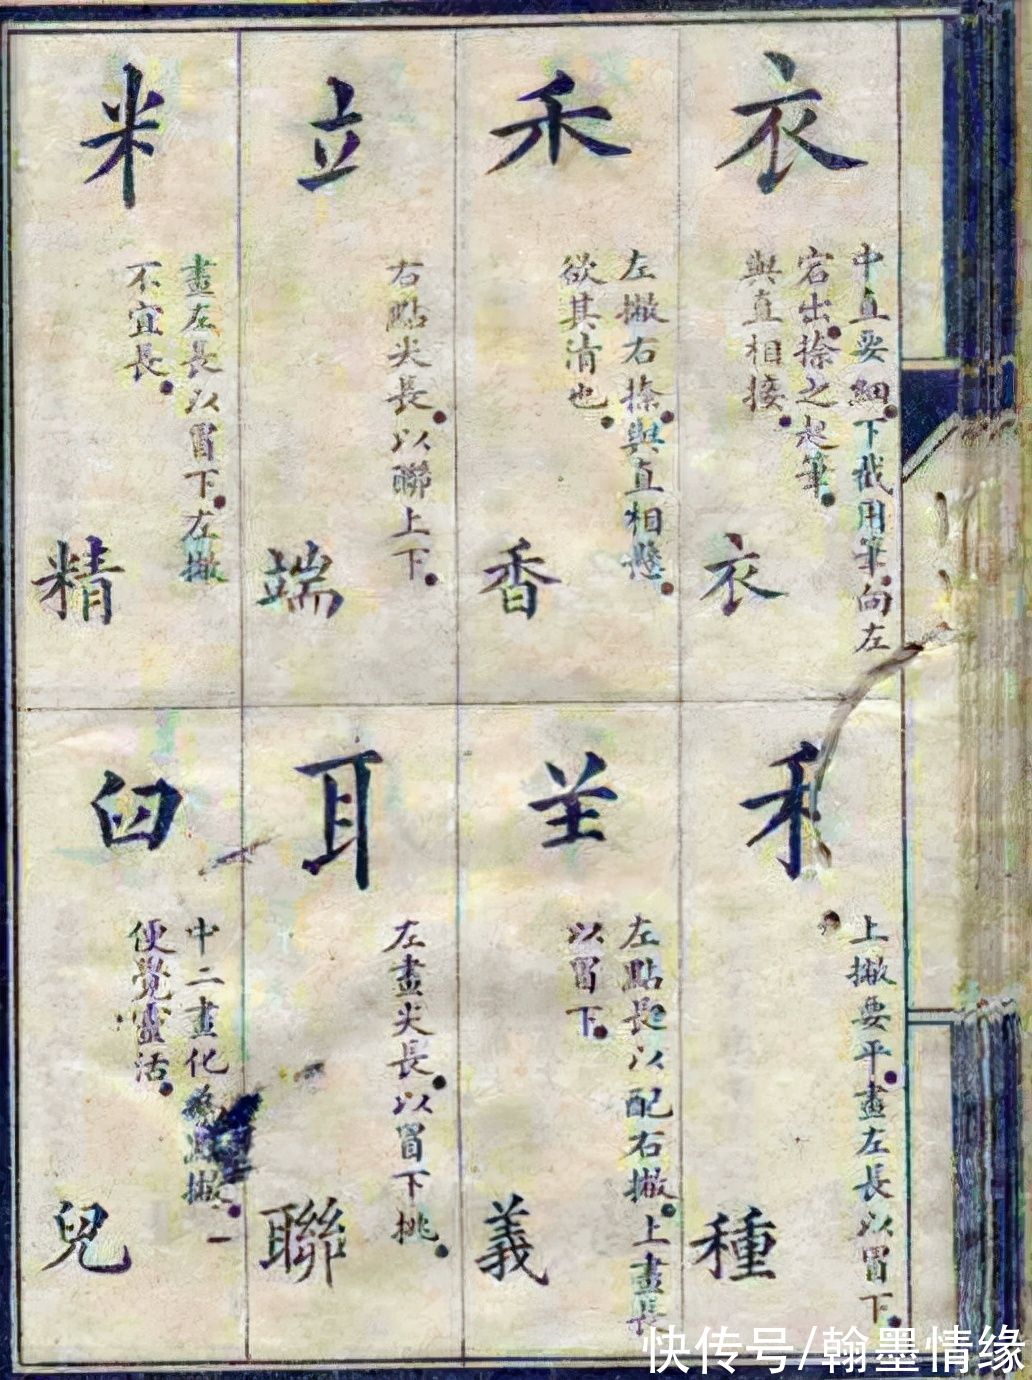 衣
中直要細。下截用筆。向左
宕出。捺之起筆。
與直相接。
衣
禾
左撇右捺。與直相
欲其清也。
香
立
右點尖長。以聯上下。
端
米
畫左長以冒下。左撇
不宜長。
精
禾
上撇要平。畫左長以冒下。
種
𦍌
左點長以配右撇。上畫長
以冒下。
義
耳
左畫尖長。以冒下挑。
聯
臼
中二畫化為點撇。一
便覺靈活。
兒
快传号/翰墨情缘